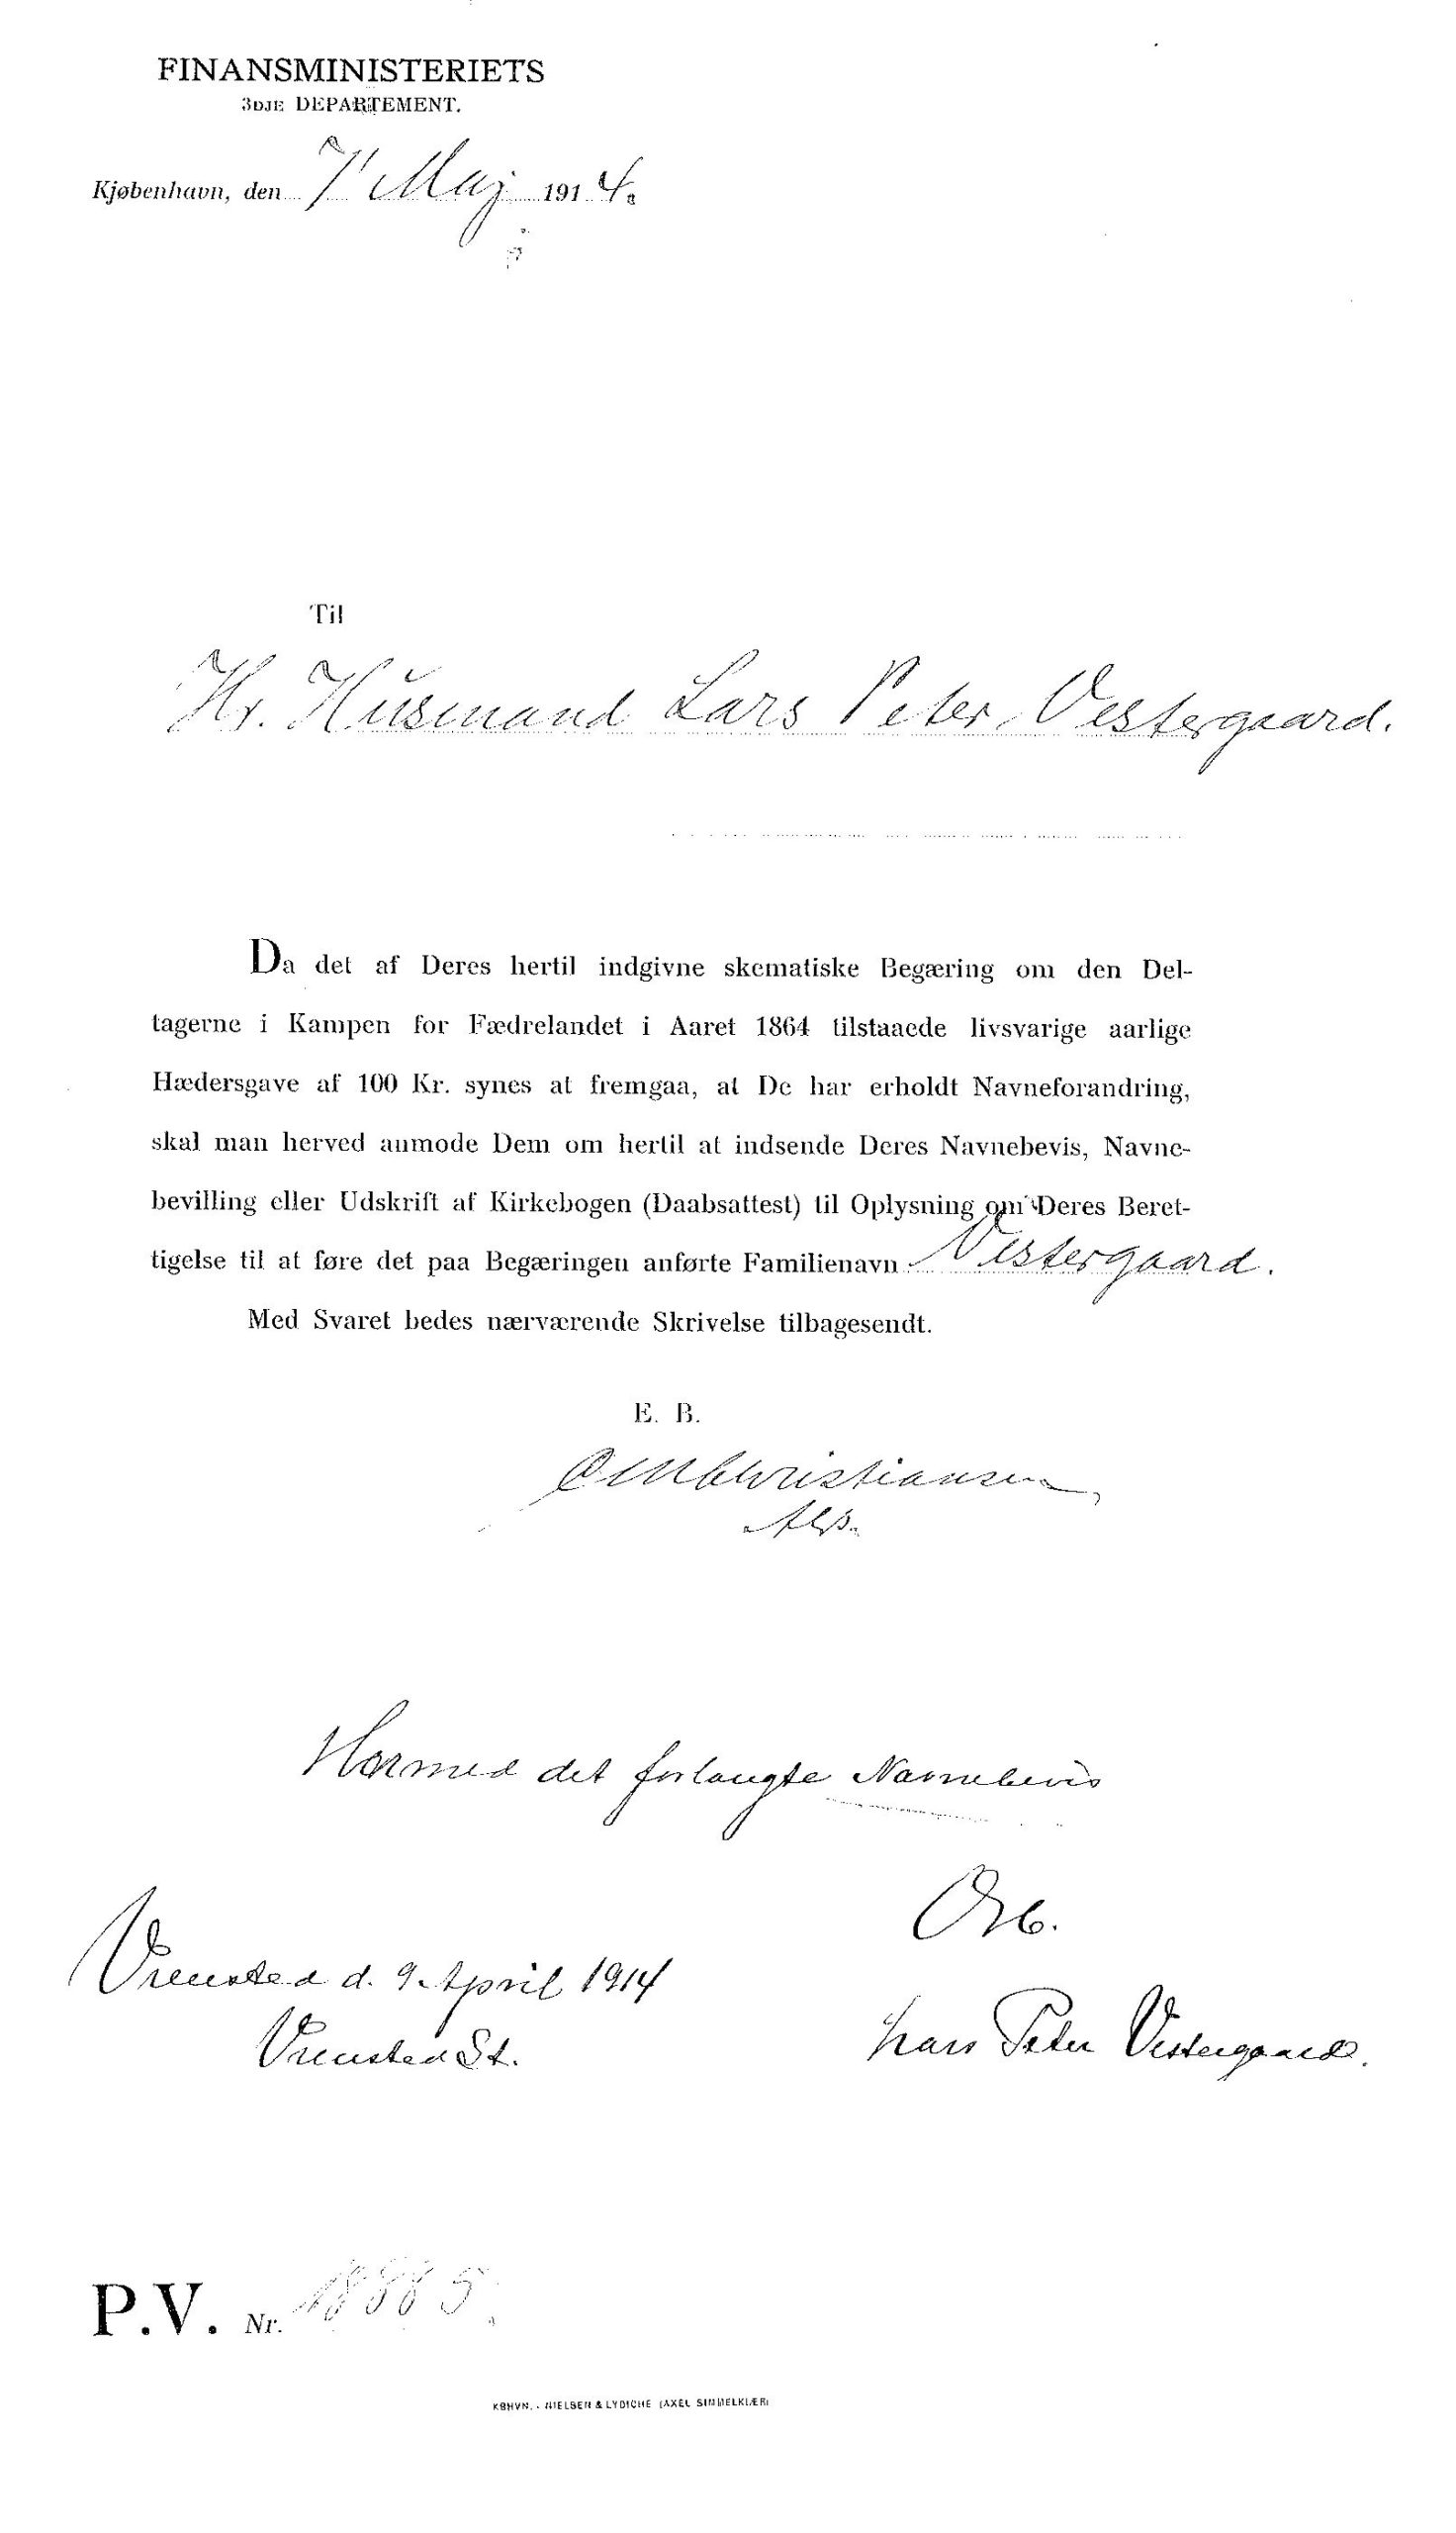 FINANSMINISTERIETS
3DJE DEPARTEMENT.
Kjøbenhavn, den 7' Maj 1914.
Til
Hr. Husmand Lars Peter Vestergaard.
Da det af Deres hertil indgivne skematiske Begæring om den Del-
tagerne i Kampen for Fædrelandet i Aaret 1864 tilstaaede livsvarige aarlige
Hædersgave af 100 Kr. synes at fremgaa, at De har erholdt Navneforandring,
skal man herved anmode Dem om hertil at indsende Deres Navnebevis, Navne-
bevilling eller Udskrift af Kirkebogen (Daabsattest) til Oplysning om Deres Beret-
tigelse til at føre det paa Begæringen anførte Familienavn Vestergaard.
Med Svaret bedes nærværende Skrivelse tilbagesendt.
E. B.
Christiansen
Hermed det forlangte Navnebevis
Ærb.
Vrensted d. 9 April 1914
Vrensted St.
Lars Peter Vestergaard.
P.V. Nr. 18885.
KBHVN. - NIELSEN & LYDICHE (AXEL SIMMELKIÆR)